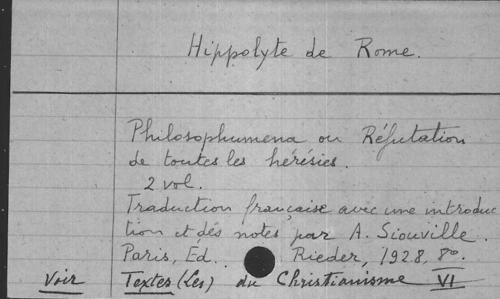 Hippolyte de Rome.
Philosophumena ou Réfutation
de toutes les hérésies.
2 vol.
Traduction française avec une introduc
tion et des notes par A. Siouville.
Paris, Éd. Rieder, 1928, 8º.
Voir Textes (Les) du Christianisme VI